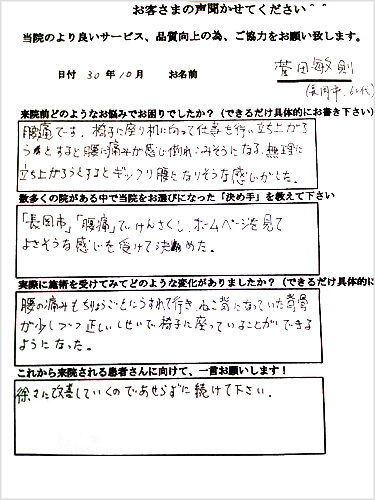 お客さまの声聞かせてください＾＾
当院のより良いサービス、品質向上の為、ご協力をお願い致します。
日付 30年10月 お名前 菅田敏則
(長岡市、60代)
来院前どのようなお悩みでお困りでしたか？（できるだけ具体的にお書き下さい）
腰痛です、椅子に座り机に向って仕事を行い立ち上がろ
うとすると腰に痛みが感じ倒れこみそうになる、無理に
立ち上がろうとするとギックリ腰となりそうな感じがした。
数多くの院がある中で当院をお選びになった「決め手」を教えて下さい
「長岡市」「腰痛」でけんさくし、ホームページを見て
よさそうな感じを受けて決めた。
実際に施術を受けてみてどのような変化がありましたか？（できるだけ具体的に
腰の痛みもちりょうごとにうすれて行き、ねこ背になっていた背骨
が少しづつ正しいしせいで椅子に座っていることができる
ようになった。
これから来院される患者さんに向けて、一言お願いします！
徐々に改善していくのであせらずに続けて下さい。